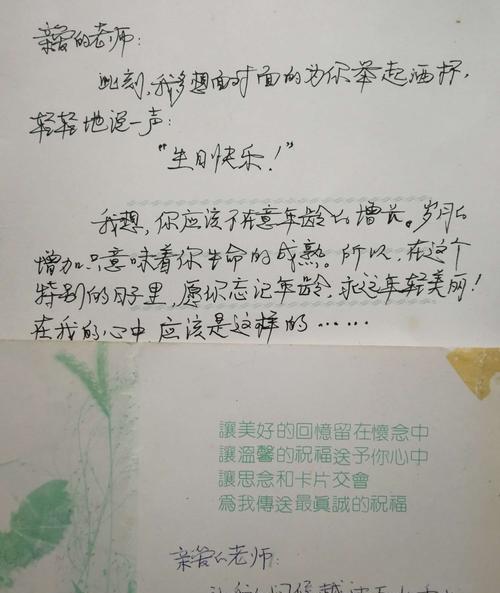 亲爱的老师:
此刻,我多想面对面的为你举起酒杯,
轻轻地说一声:
“生日快乐!”
我想,你应该不在意年龄的增长。岁月的
增加只意味着你生命的成熟。所以,在这个
特别的日子里,愿你忘记年龄,永远年轻美丽!
在我的心中 应该是这样的……
讓美好的回憶留在懷念中
讓溫馨的祝福送予你心中
讓思念和卡片交會
為我傳送最眞誠的祝福
亲爱的老师: